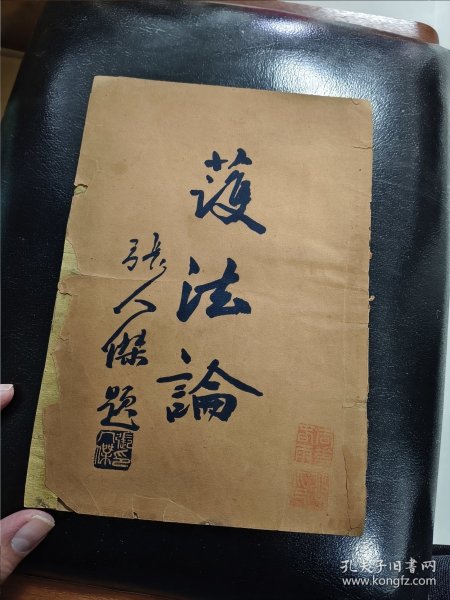 護法論
張人傑題
張人傑印
孔夫子旧书网
www.kongfz.com